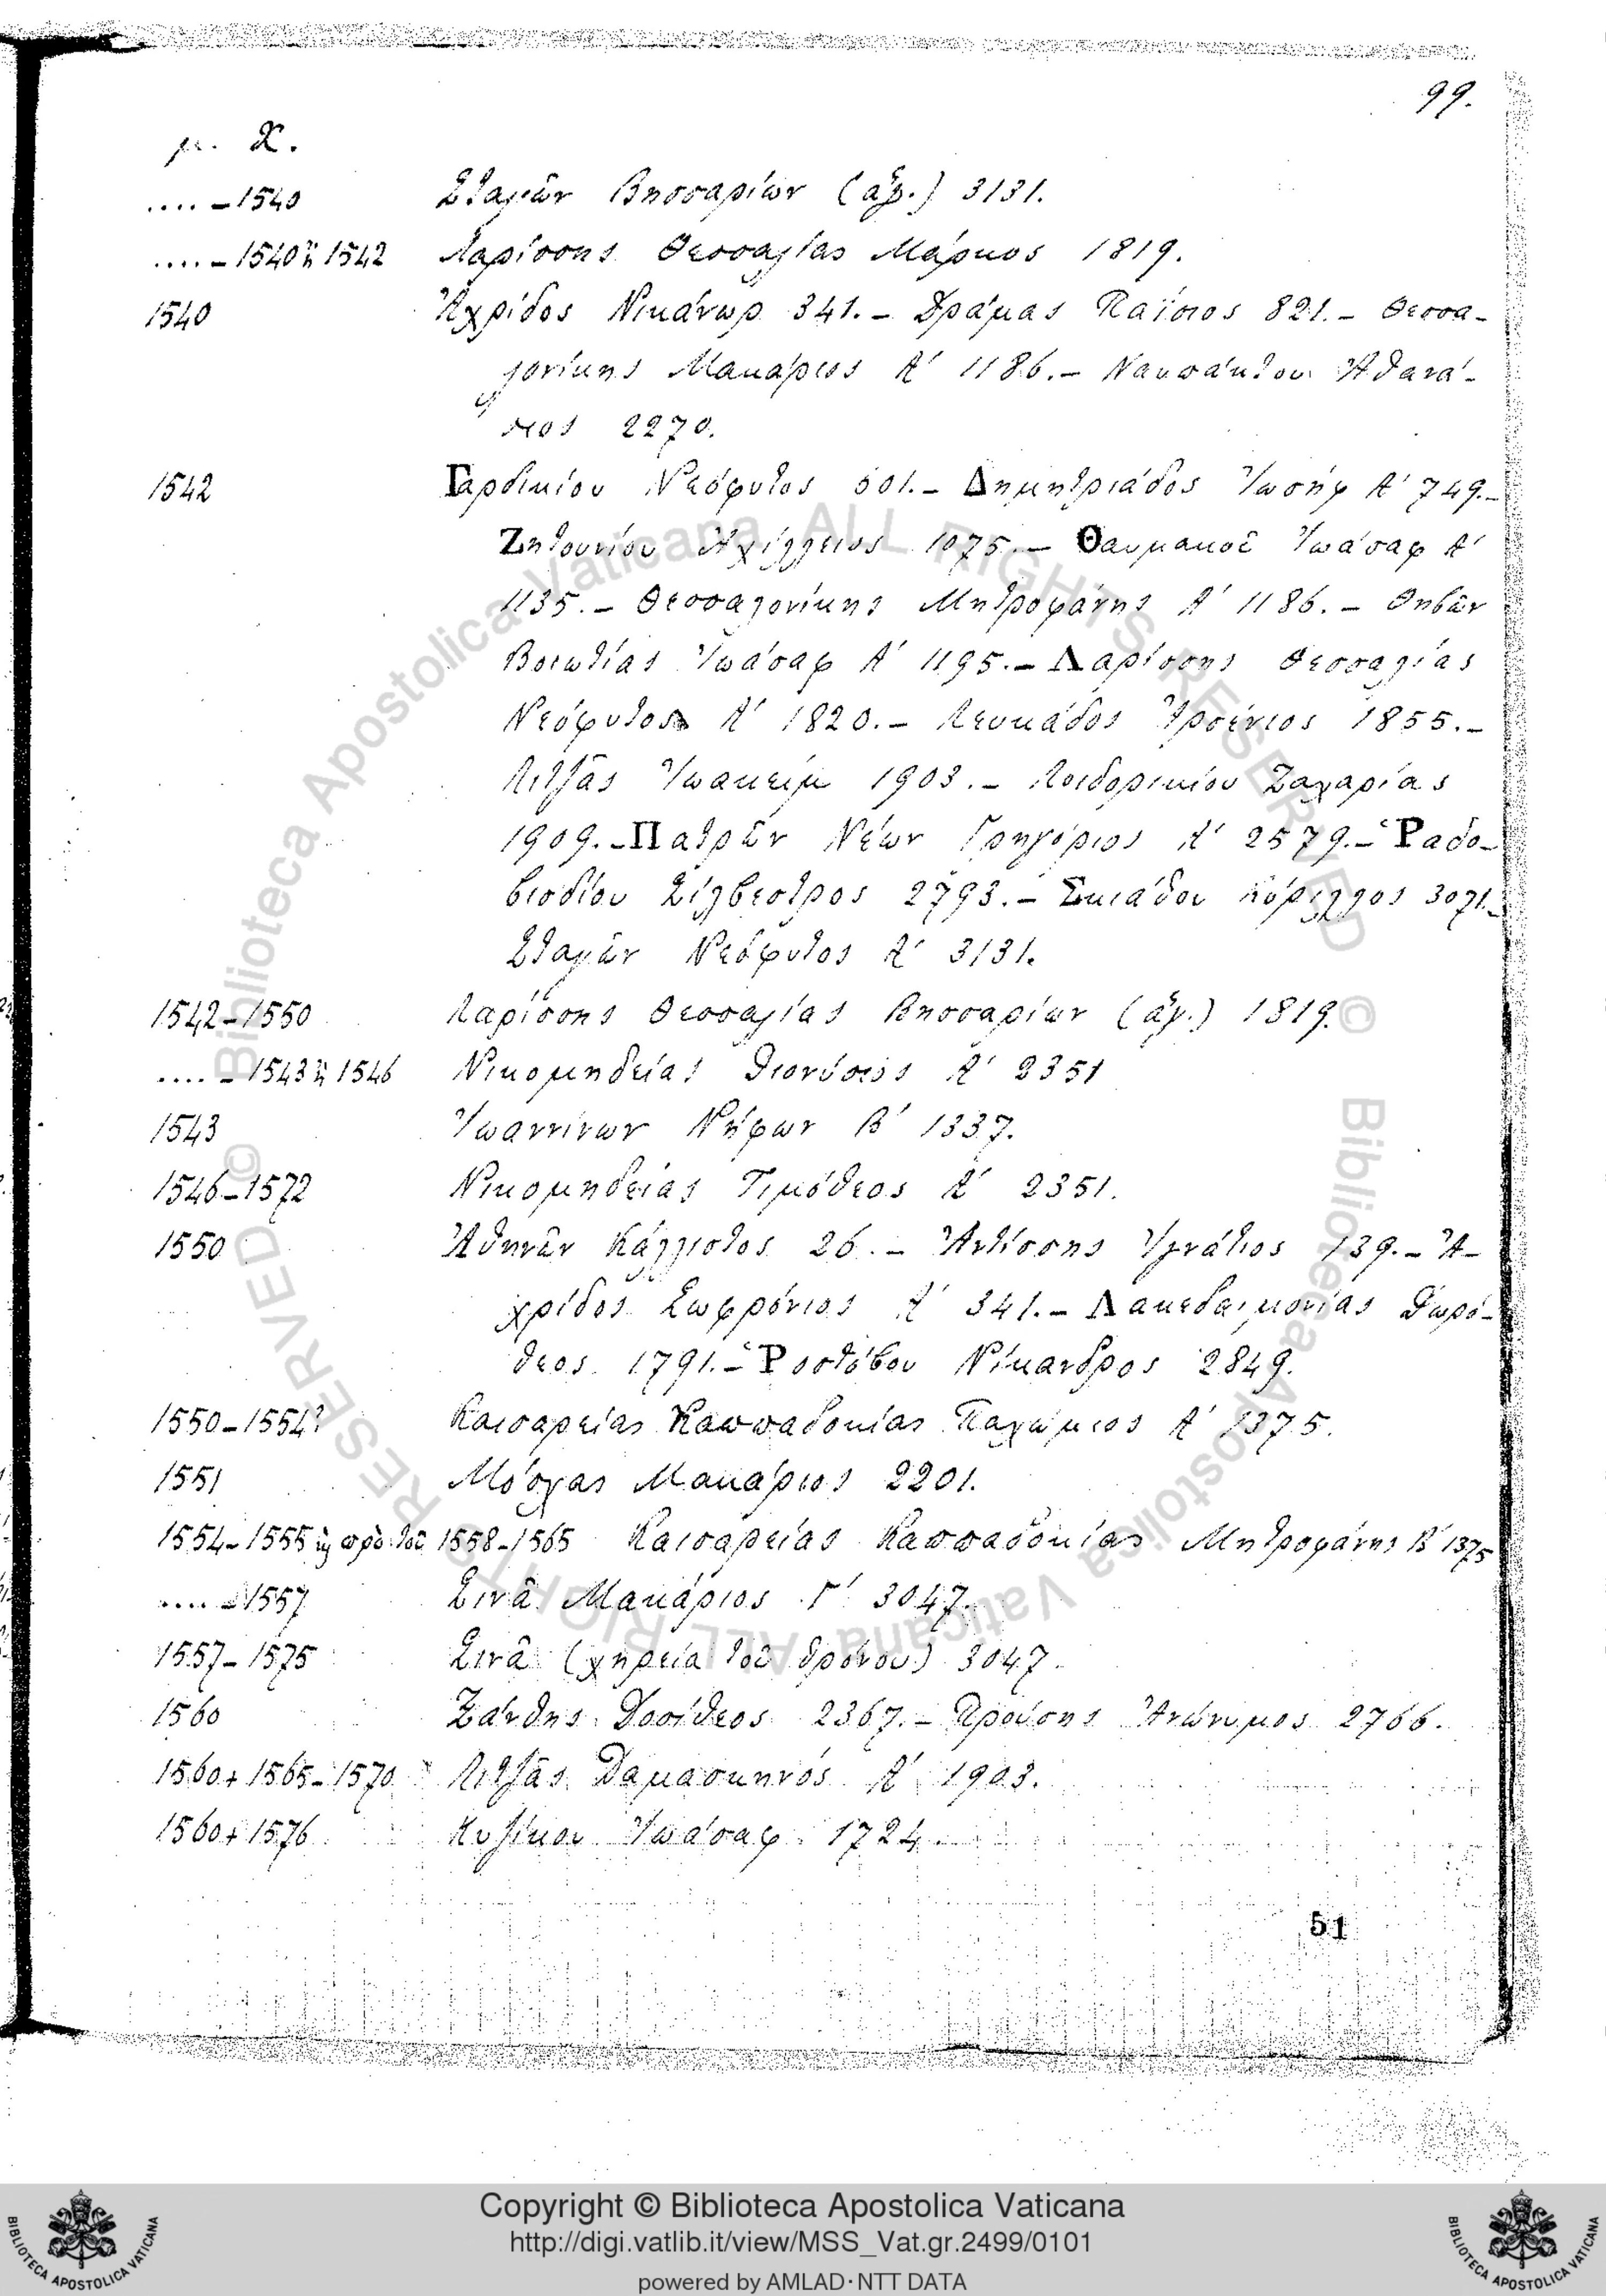 99.
μ. Χ.
.... – 1540 Σταγῶν Βησσαρίων (ἅγ.) 3131.
.... – 1540 ἢ 1542 Λαρίσσης Θεσσαλίας Μάρκος 1819.
1540 Ἀχρίδος Νικάνωρ 341. – Δράμας Παΐσιος 821. – Θεσσα-
λονίκης Μακάριος Α' 1186. – Ναυπάκτου Ἀθανά-
σιος 2270.
1542 Γαρδικίου Νεόφυτος 501. – Δημητριάδος Ἰωσήφ Α' 749. –
Ζητουνίου Ἀχίλλειος 1075. – Θαυμακοῦ Ἰωάσαφ Α'
1135. – Θεσσαλονίκης Μητροφάνης Α' 1186. – Θηβῶν
Βοιωτίας Ἰωάσαφ Α' 1195. – Λαρίσσης Θεσσαλίας
Νεόφυτος Α' 1820. – Λευκάδος Ἀρσένιος 1855. –
Λιτζᾶς Ἰωακείμ 1903. – Λοιδορικίου Ζαχαρίας
1909. – Πατρῶν Νέων Γρηγόριος Α' 2579. – Ῥαδο-
βισδίου Σίλβεστρος 2793. – Σκιάθου Κύριλλος 3071. –
Σταγῶν Νεόφυτος Α' 3131.
1542 – 1550 Λαρίσσης Θεσσαλίας Βησσαρίων (ἅγ.) 1819.
.... – 1543 ἢ 1546 Νικομηδείας Διονύσιος Α' 2351
1543 Ἰωαννίνων Νήφων Β' 1337.
1546 – 1572 Νικομηδείας Τιμόθεος Α' 2351.
1550 Ἀθηνῶν Κάλλιστος 26. – Ἀντίσσης Ἰγνάτιος 139. – Ἀ-
χρίδος Σωφρόνιος Α' 341. – Λακεδαιμονίας Δωρό-
θεος 1791. – Ῥοστόβου Νίκανδρος 2849.
1550 – 1554? Καισαρείας Καππαδοκίας Παχώμιος Α' 1375.
1551 Μόσχας Μακάριος 2201.
1554 – 1555 ἢ πρὸ τοῦ 1558 – 1565 Καισαρείας Καππαδοκίας Μητροφάνης Β' 1375
.... – 1557 Σινᾶ Μακάριος Γ' 3047.
1557 – 1575 Σινᾶ (χηρεία τοῦ θρόνου) 3047.
1560 Ξάνθης Δοσίθεος 2367. – Προύσης Ἀνώνυμος 2766.
1560 + 1565 – 1570 Λιτζᾶς Δαμασκηνός Α' 1903.
1560 + 1576 Κυζίκου Ἰωάσαφ 1724.
51
© Biblioteca Apostolica Vaticana ALL RIGHTS RESERVED
© Biblioteca Apostolica Vaticana ALL RIGHTS RESERVED
Copyright © Biblioteca Apostolica Vaticana
http://digi.vatlib.it/view/MSS_Vat.gr.2499/0101
powered by AMLAD·NTT DATA
BIBLIOTECA APOSTOLICA VATICANA
BIBLIOTECA APOSTOLICA VATICANA